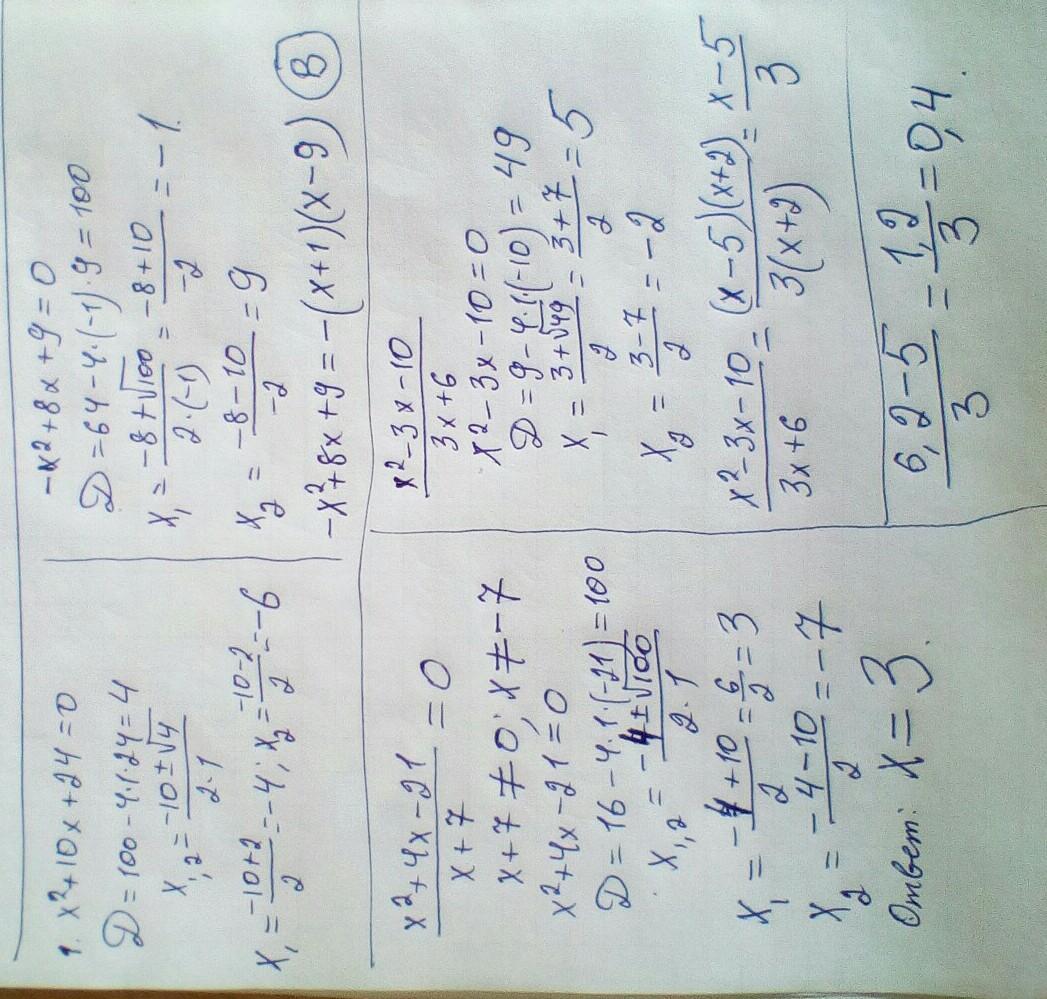 1. x²+10x+24=0
D=100-4·1·24=4
x₁,₂=(-10±√4)/(2·1)
x₁=(-10+2)/2=-4; x₂=(-10-2)/2=-6
-x²+8x+9=0
D=64-4·(-1)·9=100
x₁=(-8+√100)/(2·(-1))=(-8+10)/(-2)=-1.
x₂=(-8-10)/(-2)=9
-x²+8x+9=-(x+1)(x-9) В
(x²+4x-21)/(x+7)=0
x+7≠0; x≠-7
x²+4x-21=0
D=16-4·1·(-21)=100
x₁,₂=(-4±√100)/(2·1)
x₁=(-4+10)/2=6/2=3
x₂=(-4-10)/2=-7
Ответ: x=3.
(x²-3x-10)/(3x+6)
x²-3x-10=0
D=9-4·1·(-10)=49
x₁=(3+√49)/2=(3+7)/2=5
x₂=(3-7)/2=-2
(x²-3x-10)/(3x+6)=((x-5)(x+2))/(3(x+2))=(x-5)/3
(6,2-5)/3=1,2/3=0,4.